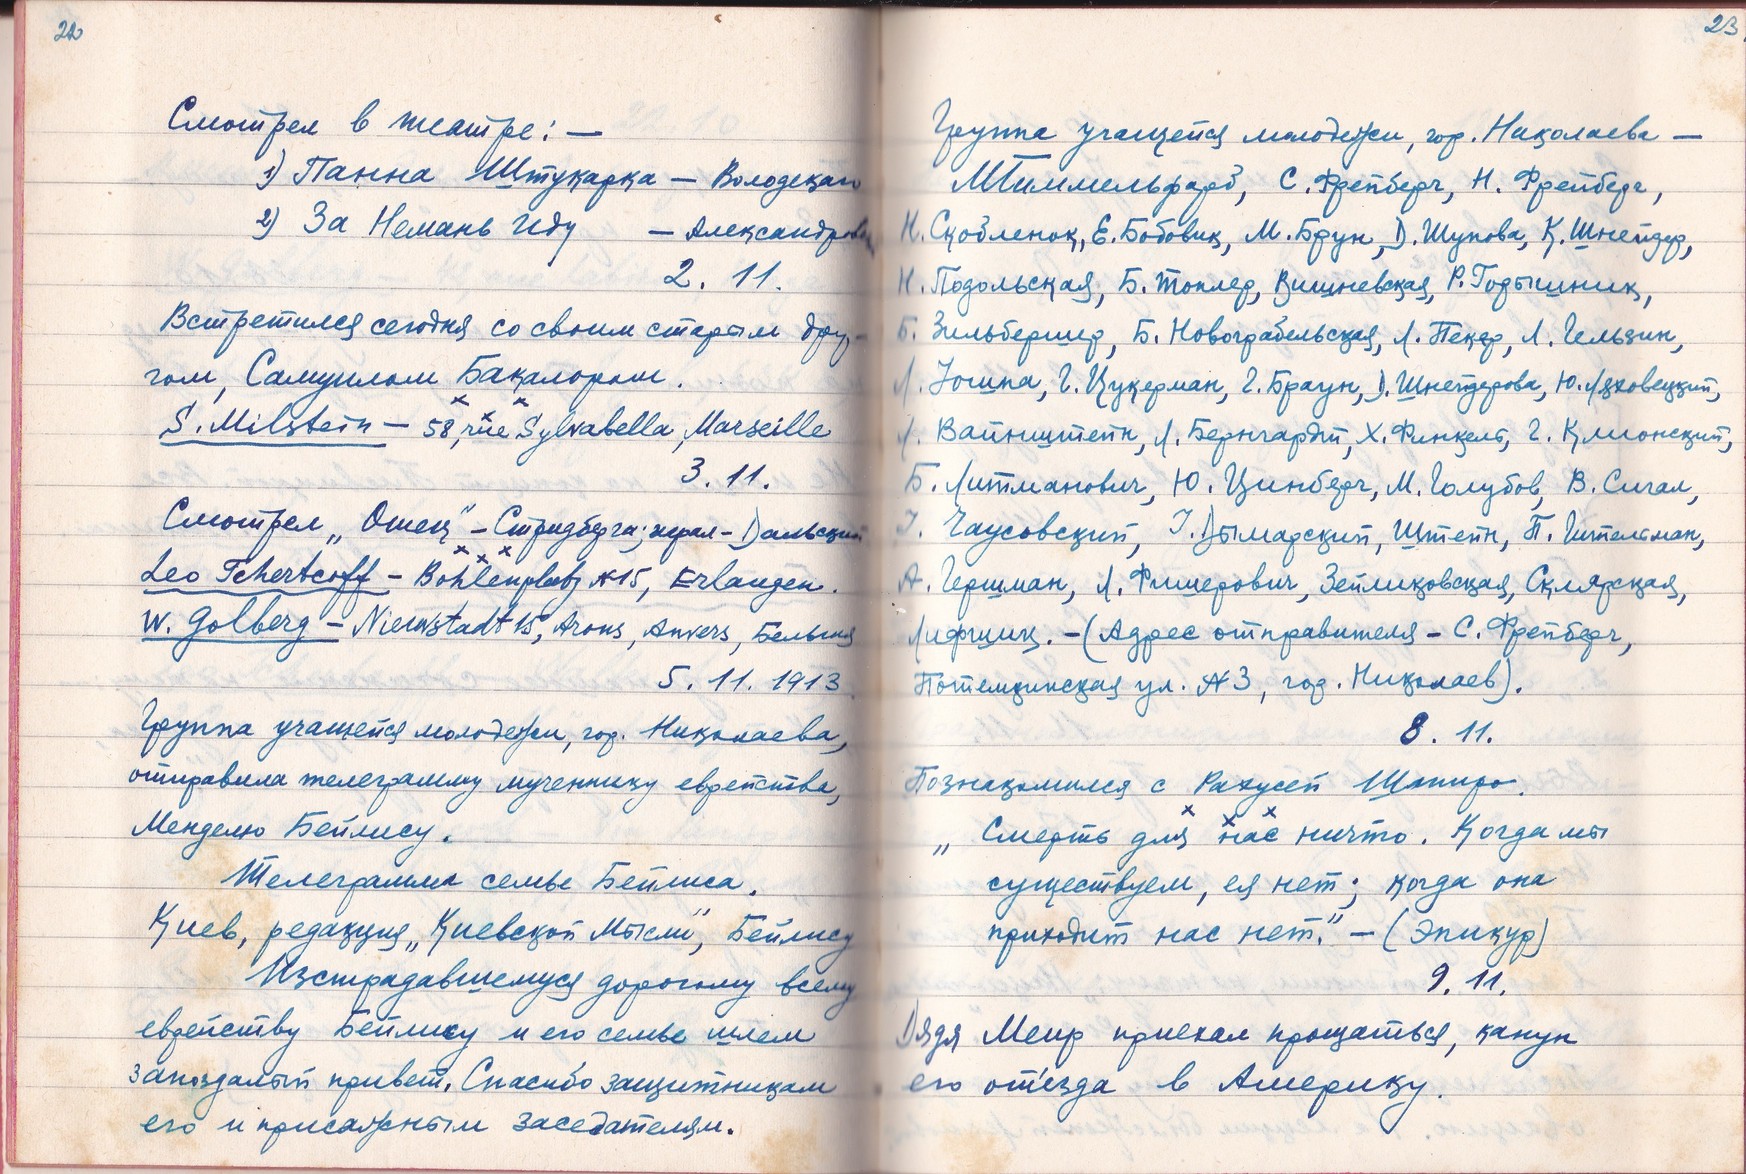 22
Смотрел в театре: —
1) Панна Штукарка — Володскаго
2) За Немань Иду — Александрова
2. 11.
Встретился сегодня со своим старым дру-
гом, Самуилом Бакалором.
x x x
S. Milstein — 58, rue Sylvabella, Marseille
3. 11.
Смотрел „Отец" – Стридберга; играл – Дальский
x x x
Leo Tchertcoff – Bohlenplatz №15, Erlangen.
W. Golberg – Nieuwstadt 15, Arons, Anvers, Бельгия
5. 11. 1913
Группа учащейся молодежи, гор. Николаева,
отправила телеграмму мученику еврейства,
Менделю Бейлису.
Телеграмма семье Бейлиса.
Киев, редакция „Киевской Мысли", Бейлису
Изстрадавшемуся дорогому всему
еврейству Бейлису и его семье шлем
запоздалый привет. Спасибо защитникам
его и присяжным заседателям.
23.
Группа учащейся молодежи, гор. Николаева —
М. Гиммельфарб, С. Фрейберг, Н. Фрейберг,
Н. Скобленок, Е. Бобовик, М. Брун, Д. Шупова, К. Шнейдер,
Н. Подольская, Б. Токлер, Вишневская, Р. Годышник,
Б. Зильбершер, Б. Новограбельская, Л. Пекер, Л. Гельзин,
Л. Йошпа, Г. Цукерман, Г. Браун, Д. Шнейдерова, Ю. Ляховецкий,
Л. Вайнштейн, Л. Бернгардт, Х. Финкель, Г. Клионский,
Б. Литманович, Ю. Цинберг, М. Голубов, В. Сигал,
I. Чаусовский, I. Дымарский, Штейн, П. Гительман,
А. Гершман, Л. Фишерович, Зейликовская, Склярская,
Лифшиц. – (Адрес отправителя – С. Фрейберг,
Потемкинская ул. № 3, гор. Николаев).
8. 11.
Познакомился с Рахусей Шапиро.
x x x
„Смерть для нас ничто. Когда мы
существуем, ея нет; когда она
приходит нас нет." – (Эпикур)
9. 11.
Дядя Меир приехал прощаться, канун
его от'езда в Америку.